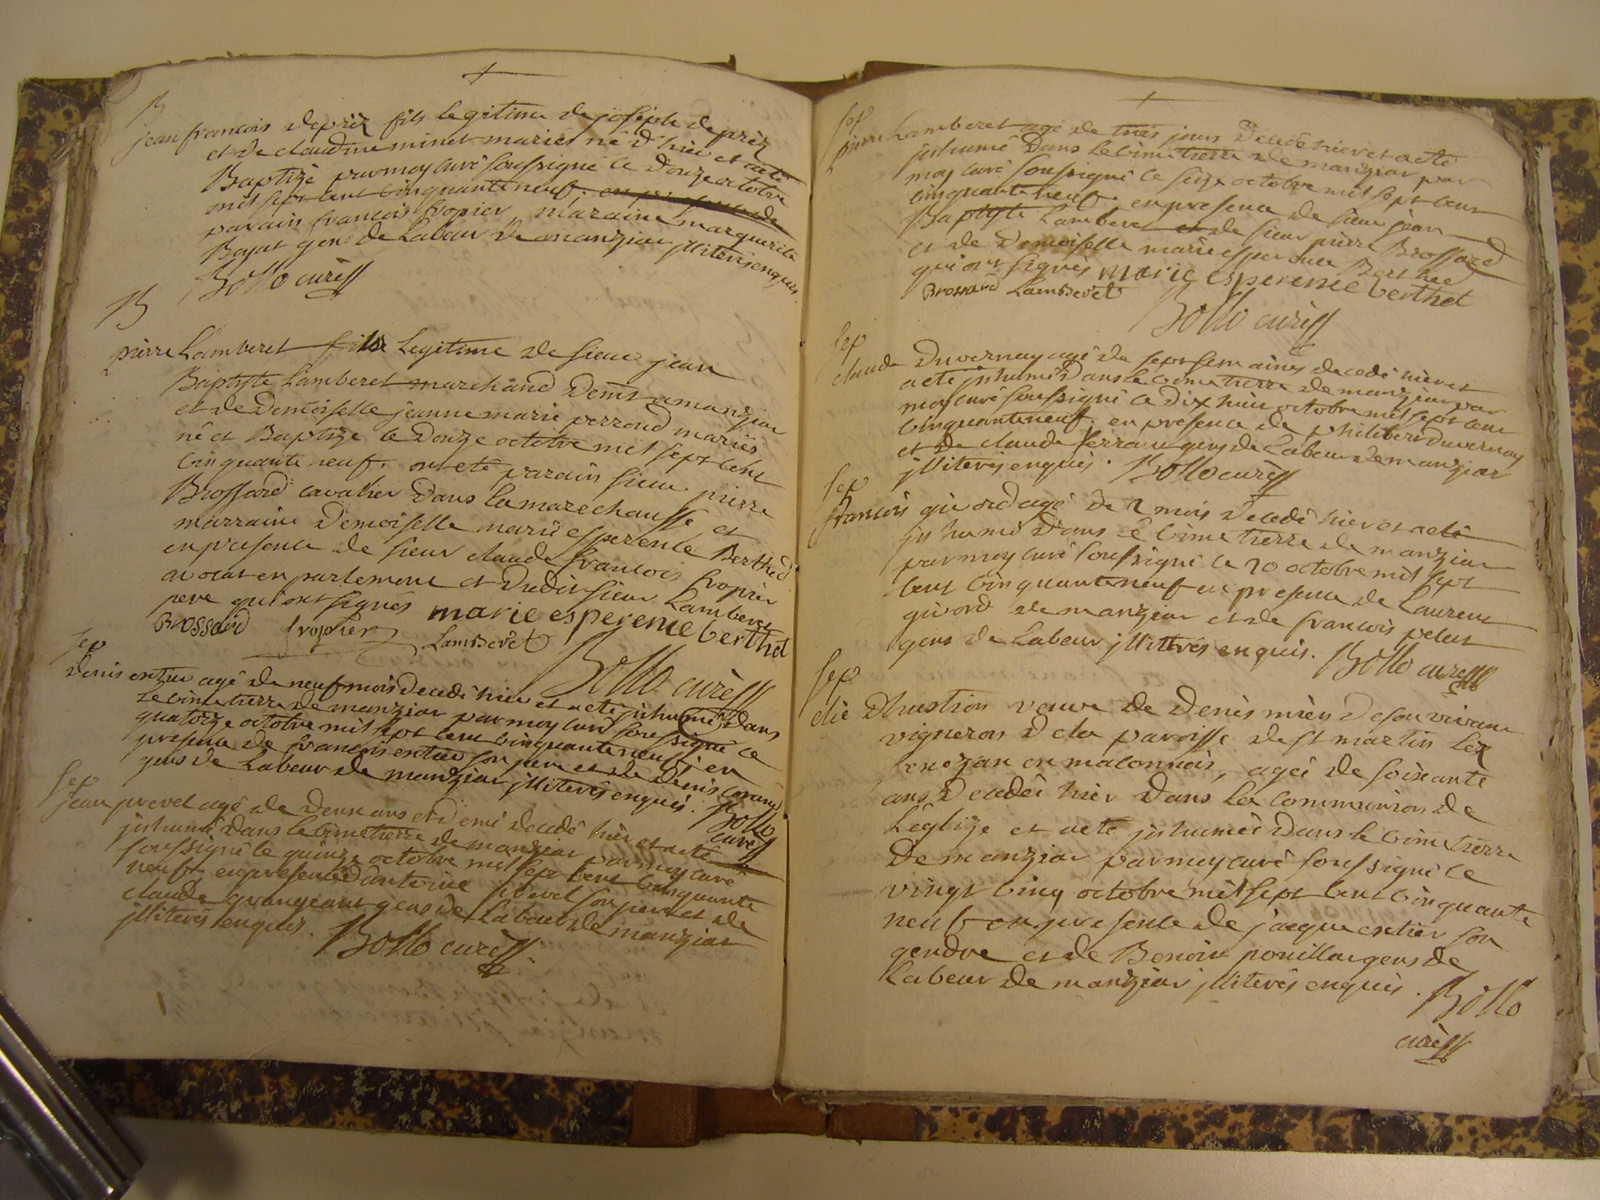 B
jean francois depriz fils legitime de joseph depriz
et de claudine minet mariés né d'hier et a eté
Baptizé par moy curé soussigné ce douze octobre
mil sept cent cinquante neuf. en presence de
parain francois fropier, maraine marguerite
Bayat gens de Labeur de manziat jlliterés enquis.
Bollo curé
B
pierre Lamberet fils Legitime de sieur jean
Baptiste Lamberet marchand demt a manziat
et de Demoiselle jeanne marie perroud mariés
né et Baptizé le douze octobre mil sept cent
cinquante neuf. ont eté parain sieur pierre
Brossard cavalier dans la marechaussé et
marraine Demoiselle marie esperence Berthed
en presence de sieur claude francois fropier
avocat en parlement et dudit sieur Lamberet
pere qui ont signés marie esperence berthet
Brossard fropier Lamberet
Bollo curé
sep
denis entier agé de neuf mois decedé hier et a eté jnhumé dans
le cimetierre de manziat par moy curé soussigné ce
quatorze octobre mil sept cent cinquante neuf, en
presence de francois entier son pere et de denis
gens de Labeur de manziat jlliterés enquis. Bollo
curé
sep
jean prevel agé de deux ans et demi decedé hier et a eté
jnhumé dans le cimetierre de manziat par moy curé
soussigné le quinze octobre mil sept cent cinquante
neuf en presence d'antoine prevel son pere et de
claude grangeant gens de Labeur de manziat
jlliterés enquis. Bollo curé
sep
pierre Lamberet agé de trois jours decedé hier et a eté
jnhumé dans le cimetierre de manziat par
moy curé soussigné ce seize octobre mil sept cent
cinquante neuf en presence de sieur jean
Baptiste Lamberet et de sieur pierre Brossard
et de Demoiselle marie esperence Berthed
qui ont signés marie esperence berthet
Brossard Lamberet
Bollo curé
sep
claude Duvernay agé de sept semaines decedé hier et
a eté jnhumé dans le cimetierre de manziat par
moy curé soussigné ce dix huit octobre mil sept cent
cinquante neuf. en presence de philibert Duvernay
et de claude ferrand gens de Labeur de manziat
jlliterés enquis. Bollo curé
sep
francois givord agé de 2 mois decedé hier et a eté
jnhumé dans le cimetierre de manziat
par moy curé soussigné le 20 octobre mil sept
cent cinquante neuf en presence de Laurent
givord de manziat et de francois pelus
gens de Labeur jllitérés enquis. Bollo curé
sep
veuve de Denis de son vivant
vigneron de la paroisse de st martin Lez
en maconnois, ageé de soixante
ans decedeé hier dans la communion de
Leglize et a eté jnhumeé dans le cimetierre
de manziat par moy curé soussigné ce
vingt cinq octobre mil sept cent cinquante
neuf en presence de jacque entier son
gendre et de Benoit pouillat gens de
Labeur de manziat jlliterés enquis. Bollo
curé